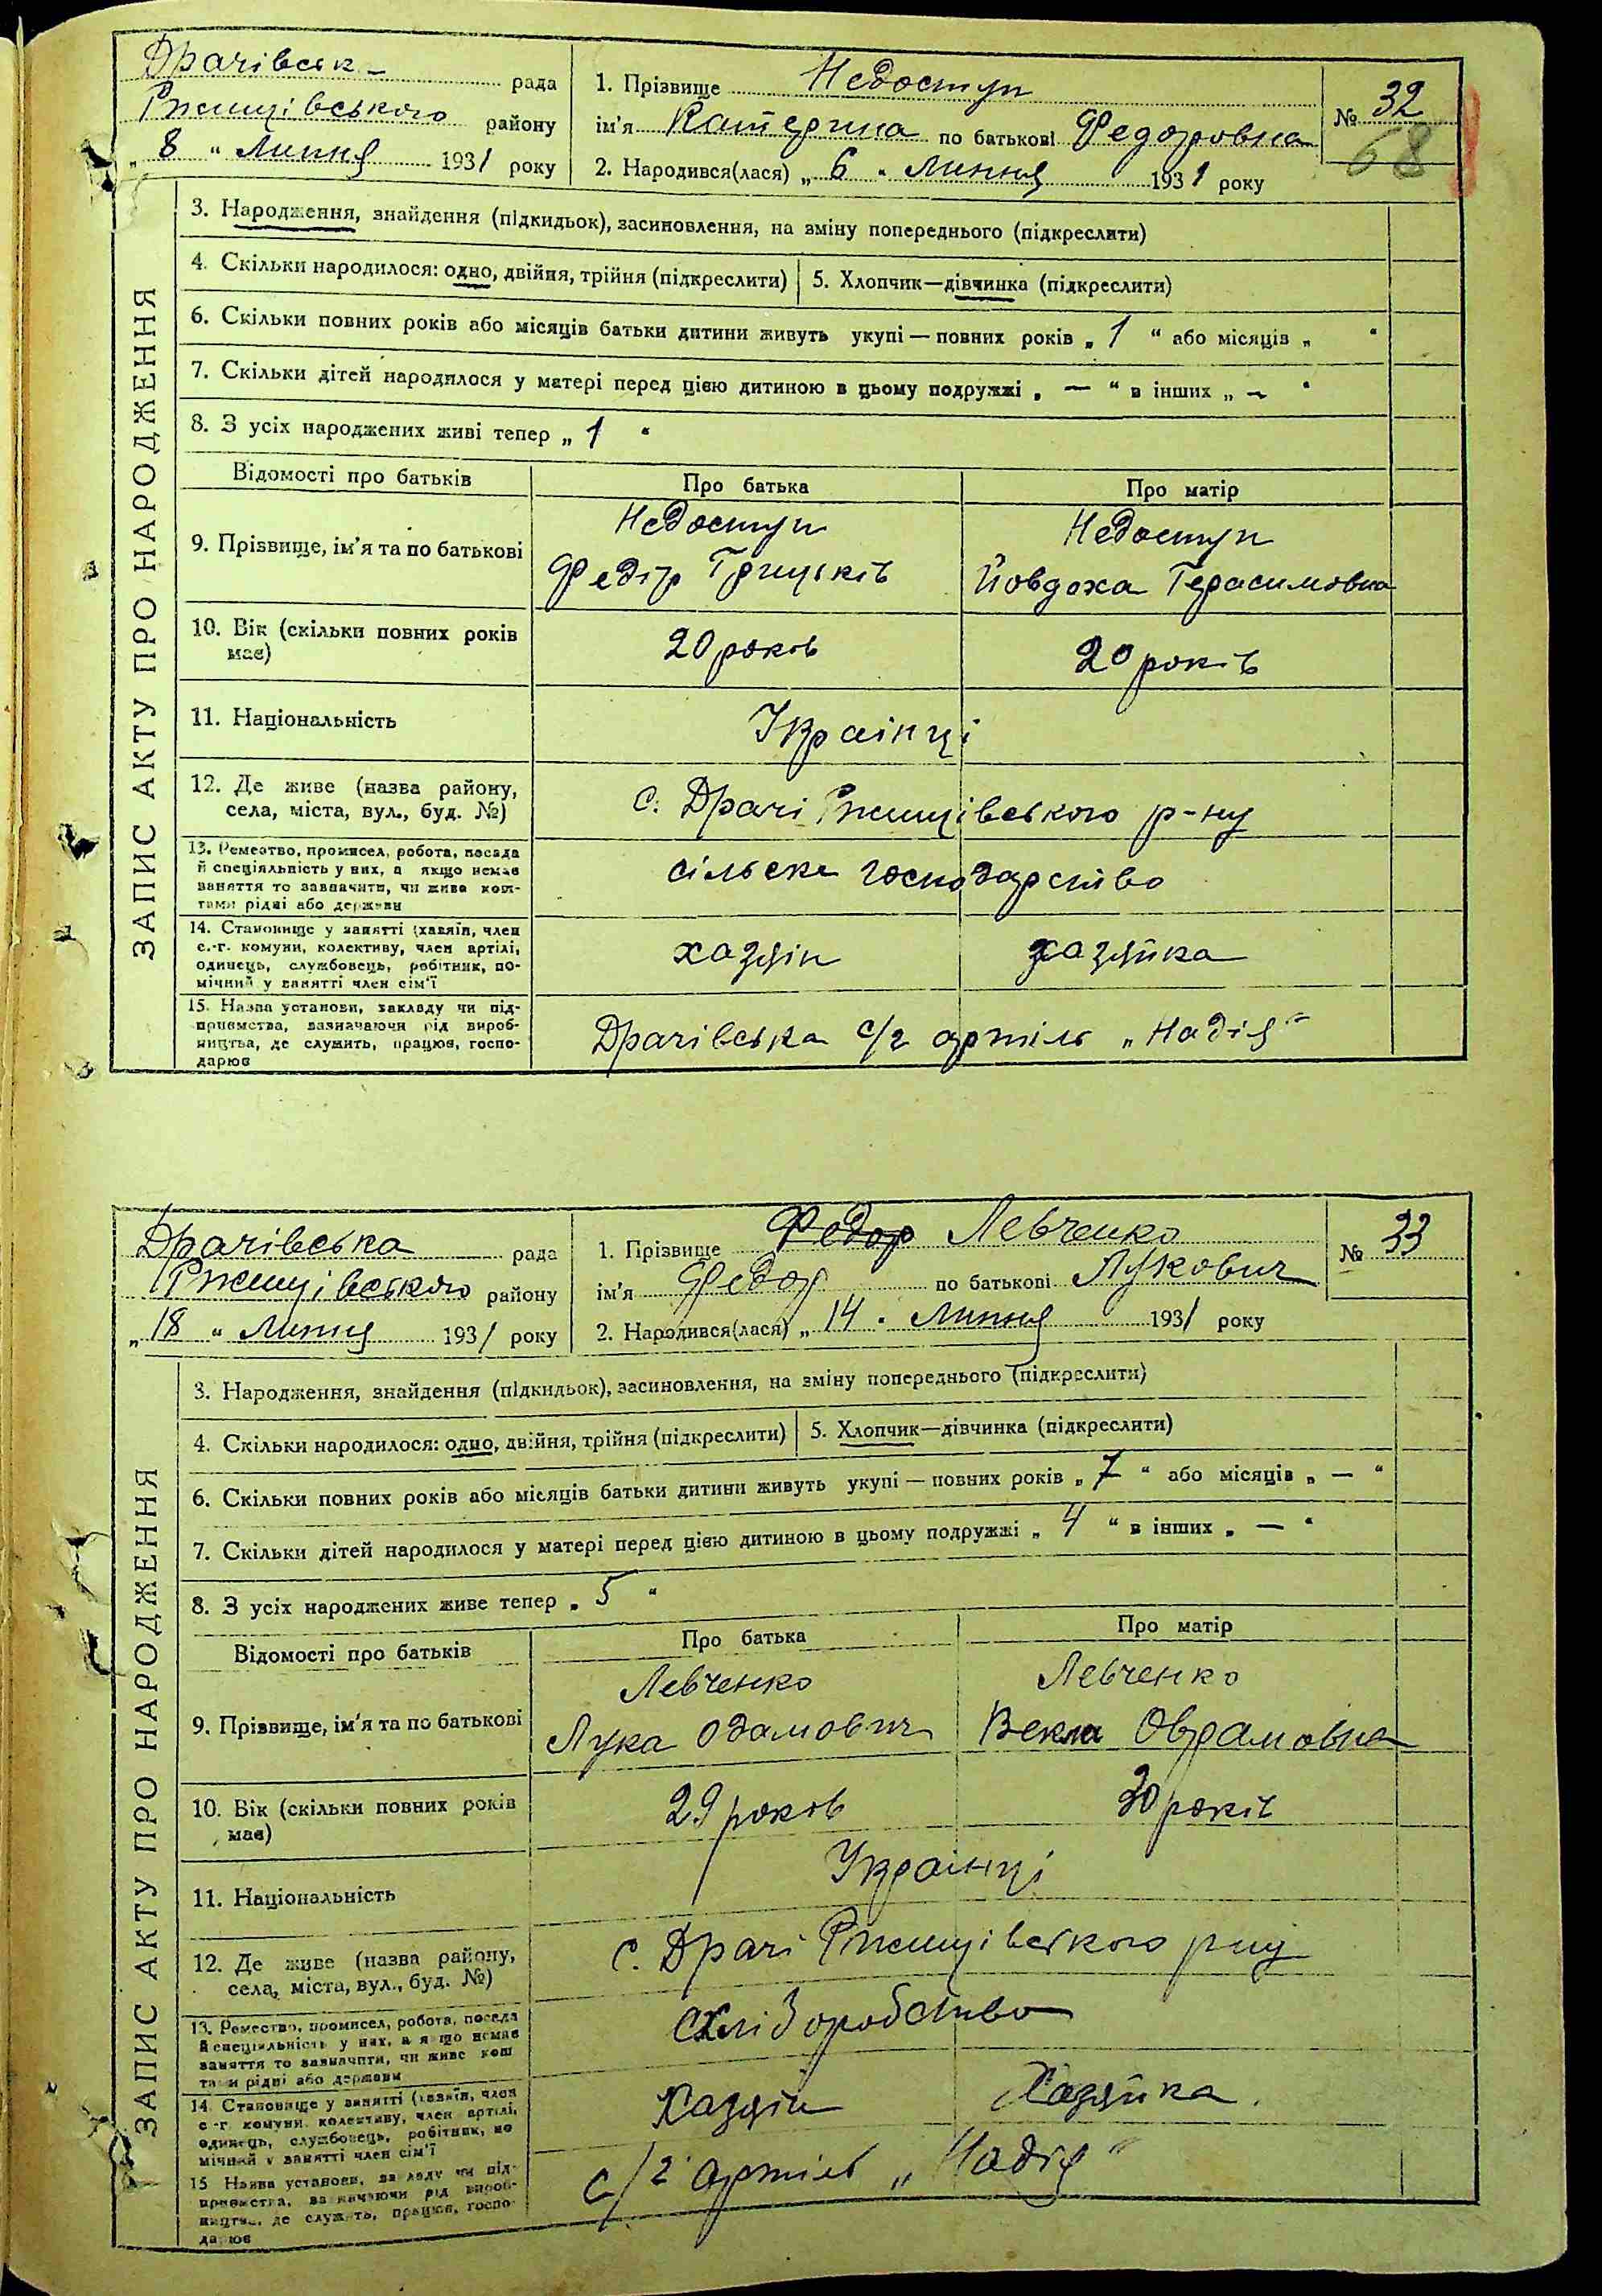 Драчівськ- рада
Ржищівського району
„ 8 “ Липня 1931 року
1. Прізвище Недоступ
ім'я Катерина по батькові Федоровна
2. Народився(лася) „ 6 “ Липня 1931 року
№ 32
68
ЗАПИС АКТУ ПРО НАРОДЖЕННЯ
3. Народження, знайдення (підкидьок), засиновлення, на зміну попереднього (підкреслити)
4. Скільки народилося: одно, двійня, трійня (підкреслити) 5. Хлопчик—дівчинка (підкреслити)
6. Скільки повних років або місяців батьки дитини живуть укупі — повних років „ 1 “ або місяців „ “
7. Скільки дітей народилося у матері перед цією дитиною в цьому подружжі „ — “ в інших „ — “
8. З усіх народжених живі тепер „ 1 “
Відомості про батьків Про батька Про матір
9. Прізвище, ім'я та по батькові
Недоступ
Федір Грицьків
Недоступ
Йовдоха Герасимовна
10. Вік (скільки повних років
має)
20 роков
20 років
11. Національність
Українці
12. Де живе (назва району,
села, міста, вул., буд. №)
с. Драчі Ржищівського р-ну
13. Ремество, промисел, робота, посада
й спеціяльність у них, а якщо немає
заняття то зазначити, чи живе кош-
тами рідні або держави
сільске господарство
14. Становище у занятті (хазяїн, член
с.-г. комуни, колективу, член артілі,
одинець, службовець, робітник, по-
мічний у занятті член сім'ї
хазяін
хазяйка
15. Назва установи, закладу чи під-
приємства, зазначаючи рід вироб-
ництва, де служить, працює, госпо-
дарює
Драчівська с/г артіль „Надія“
Драчівська рада
Ржищівського району
„ 18 “ Липня 1931 року
1. Прізвище Федор Левченко
ім'я Федор по батькові Лукович
2. Народився(лася) „ 14 “ Липня 1931 року
№ 33
ЗАПИС АКТУ ПРО НАРОДЖЕННЯ
3. Народження, знайдення (підкидьок), засиновлення, на зміну попереднього (підкреслити)
4. Скільки народилося: одно, двійня, трійня (підкреслити) 5. Хлопчик—дівчинка (підкреслити)
6. Скільки повних років або місяців батьки дитини живуть укупі — повних років „ 7 “ або місяців „ — “
7. Скільки дітей народилося у матері перед цією дитиною в цьому подружжі „ 4 “ в інших „ — “
8. З усіх народжених живе тепер „ 5 “
Відомості про батьків Про батька Про матір
9. Прізвище, ім'я та по батькові
Левченко
Лука Одамович
Левченко
Векла Оврамовна
10. Вік (скільки повних років
має)
29 роков
30 років
11. Національність
Українці
12. Де живе (назва району,
села, міста, вул., буд. №)
с. Драчі Ржищівського рну
13. Ремество, промисел, робота, посада
й спеціяльність у них, а якщо немає
заняття то зазначити, чи живе кош
тами рідні або держави
Хліборобство
14. Становище у занятті (хазяїн, член
с-г. комуни, колективу, член артілі,
одинець, службовець, робітник, по
мічний у занятті член сім'ї
Хазяін
Хазяйка
15 Назва установи, закладу чи під-
приємства, зазначаючи рід вироб-
ництва, де служить, працює, госпо-
дарює
с/г артіль „Надія“